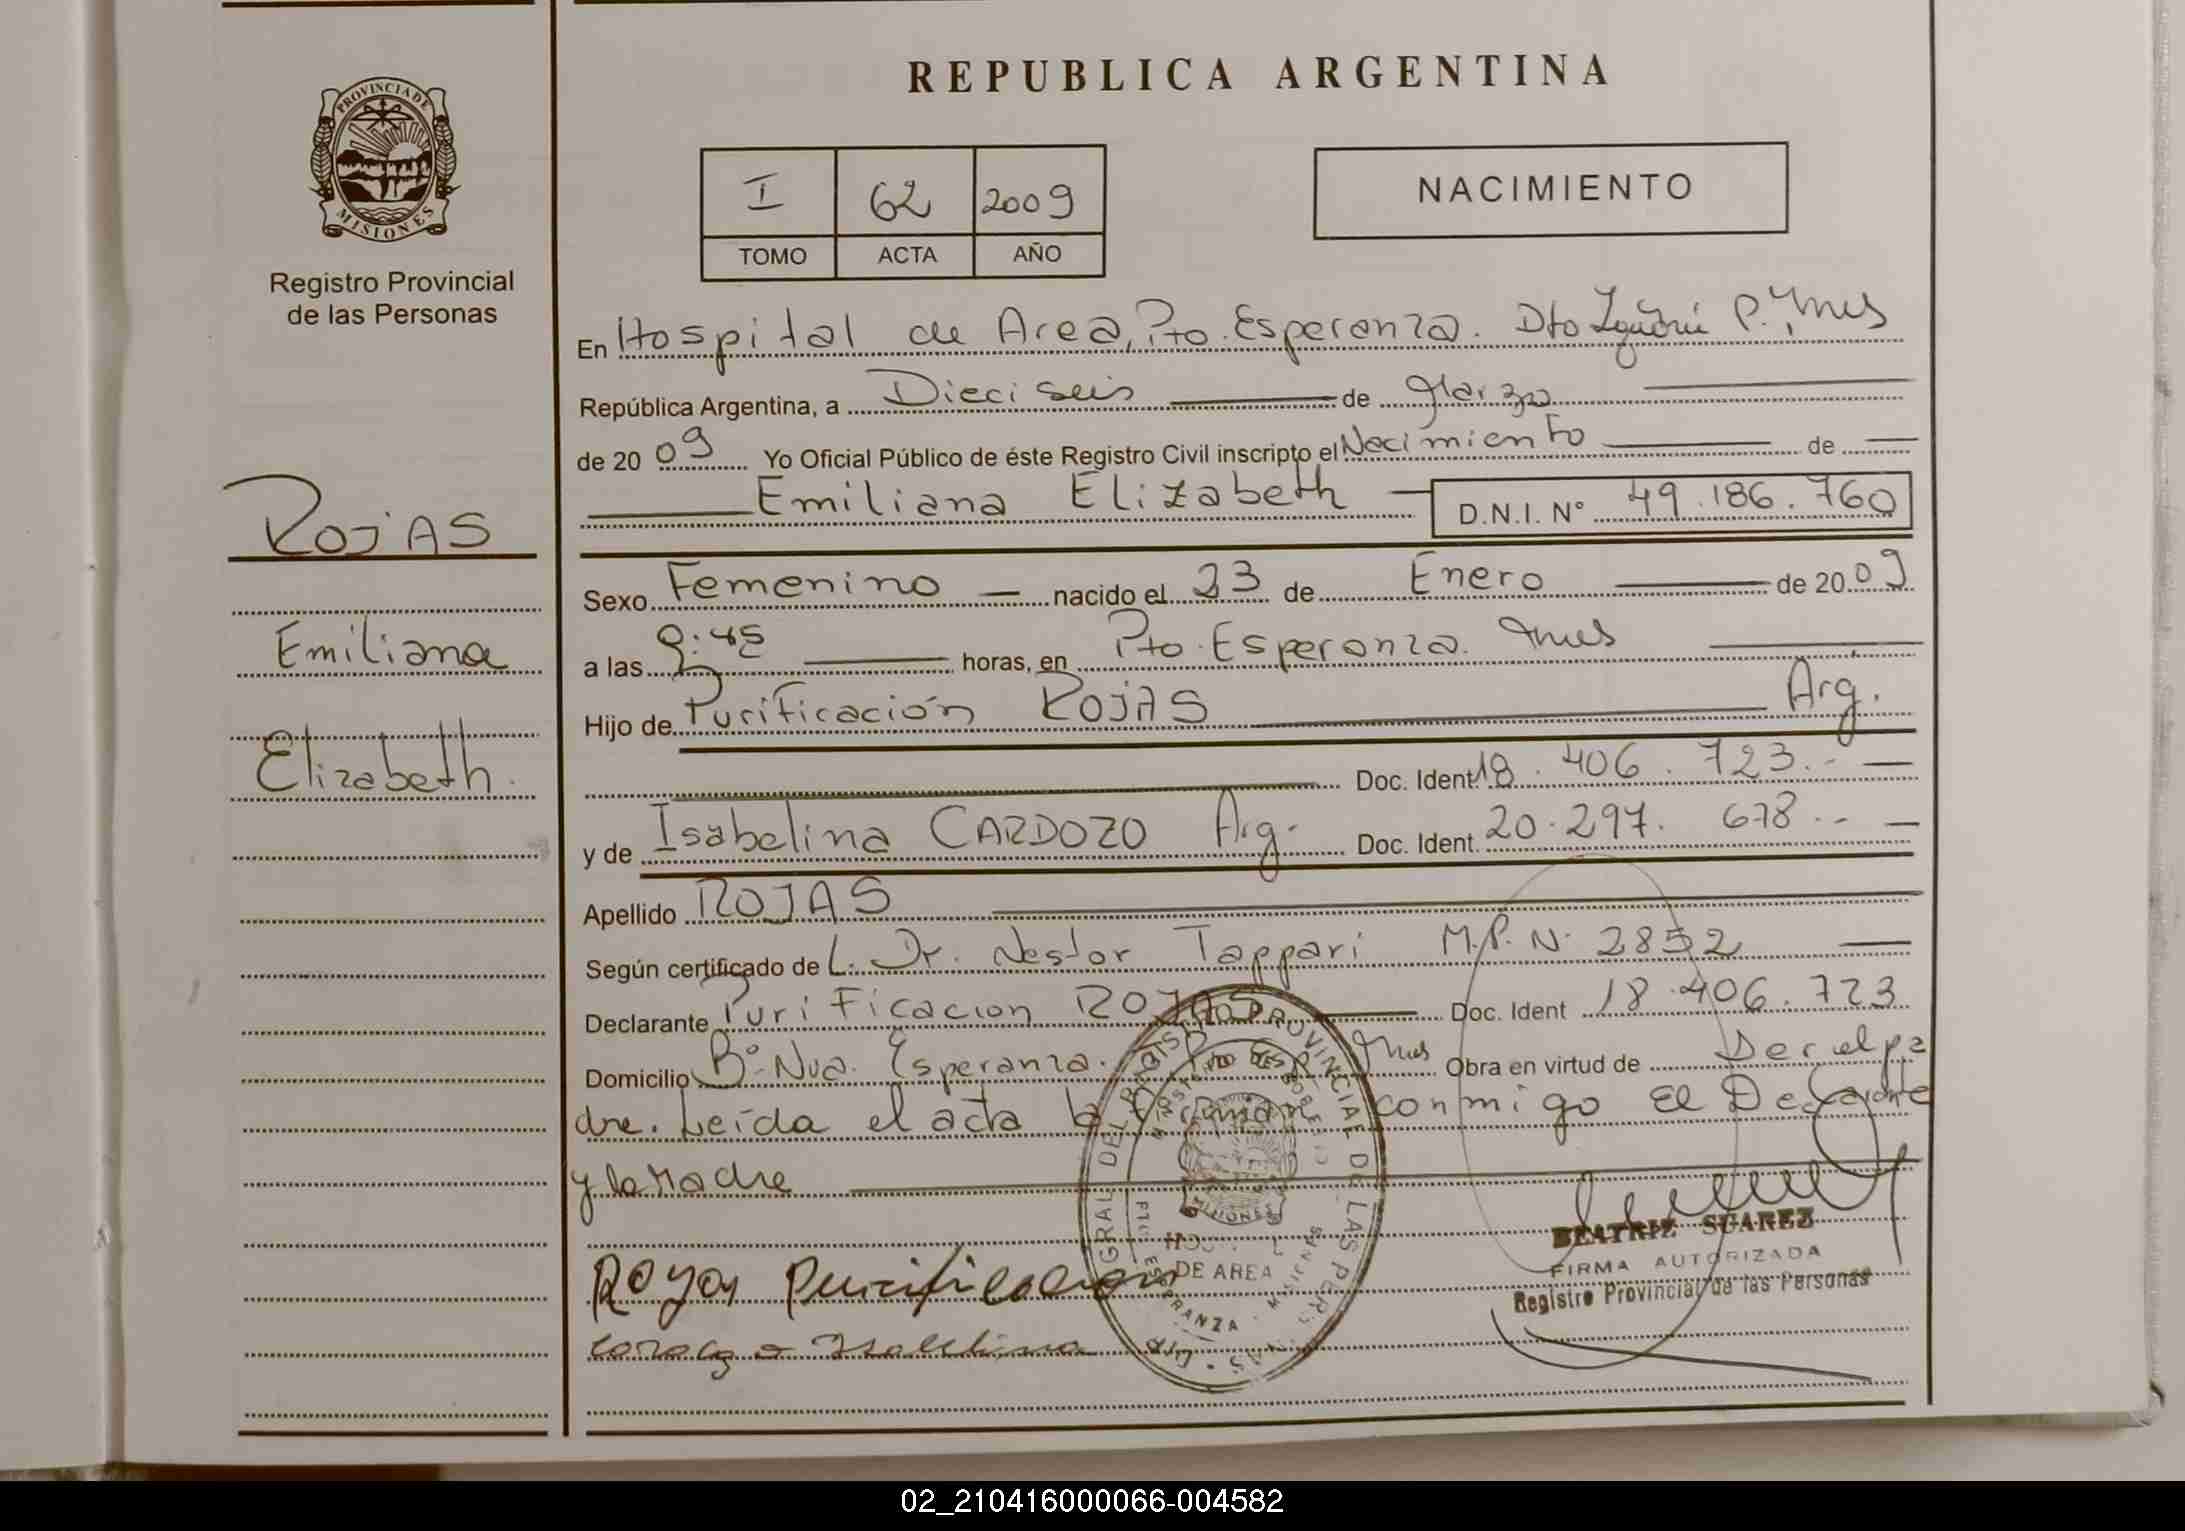 REPUBLICA ARGENTINA
PROVINCIA DE
MISIONES
Registro Provincial
de las Personas
I 62 2009
TOMO ACTA AÑO
NACIMIENTO
En Hospital de Area, Pto. Esperanza. Dto Iguazú P. Mnes
República Argentina, a Dieciseis de Marzo
de 2009 Yo Oficial Público de éste Registro Civil inscripto el Nacimiento de
Emiliana Elizabeth D.N.I. N° 49.186.760
ROJAS
Emiliana
Elizabeth.
Sexo Femenino nacido el 23 de Enero de 2009
a las :45 horas, en Pto. Esperanza. Mnes
Hijo de Purificación ROJAS Arg.
Doc. Ident 18.406.723.-
y de Isabelina CARDOZO Arg. Doc. Ident. 20.297.678.-
Apellido ROJAS
Según certificado de L. Dr. Nestor Tappari M.P. N. 2852
Declarante Purificacion ROJAS Doc. Ident 18.406.723
Domicilio B° Nva. Esperanza. Mnes Obra en virtud de Der el pa
dre. Leída el acta la firman conmigo El Declarante
y la Madre
BEATRIZ SUAREZ
FIRMA AUTORIZADA
Registro Provincial de las Personas
Rojas Purificacion
Isabelina
PROVINCIAL DE LAS
DE AREA
02_210416000066-004582